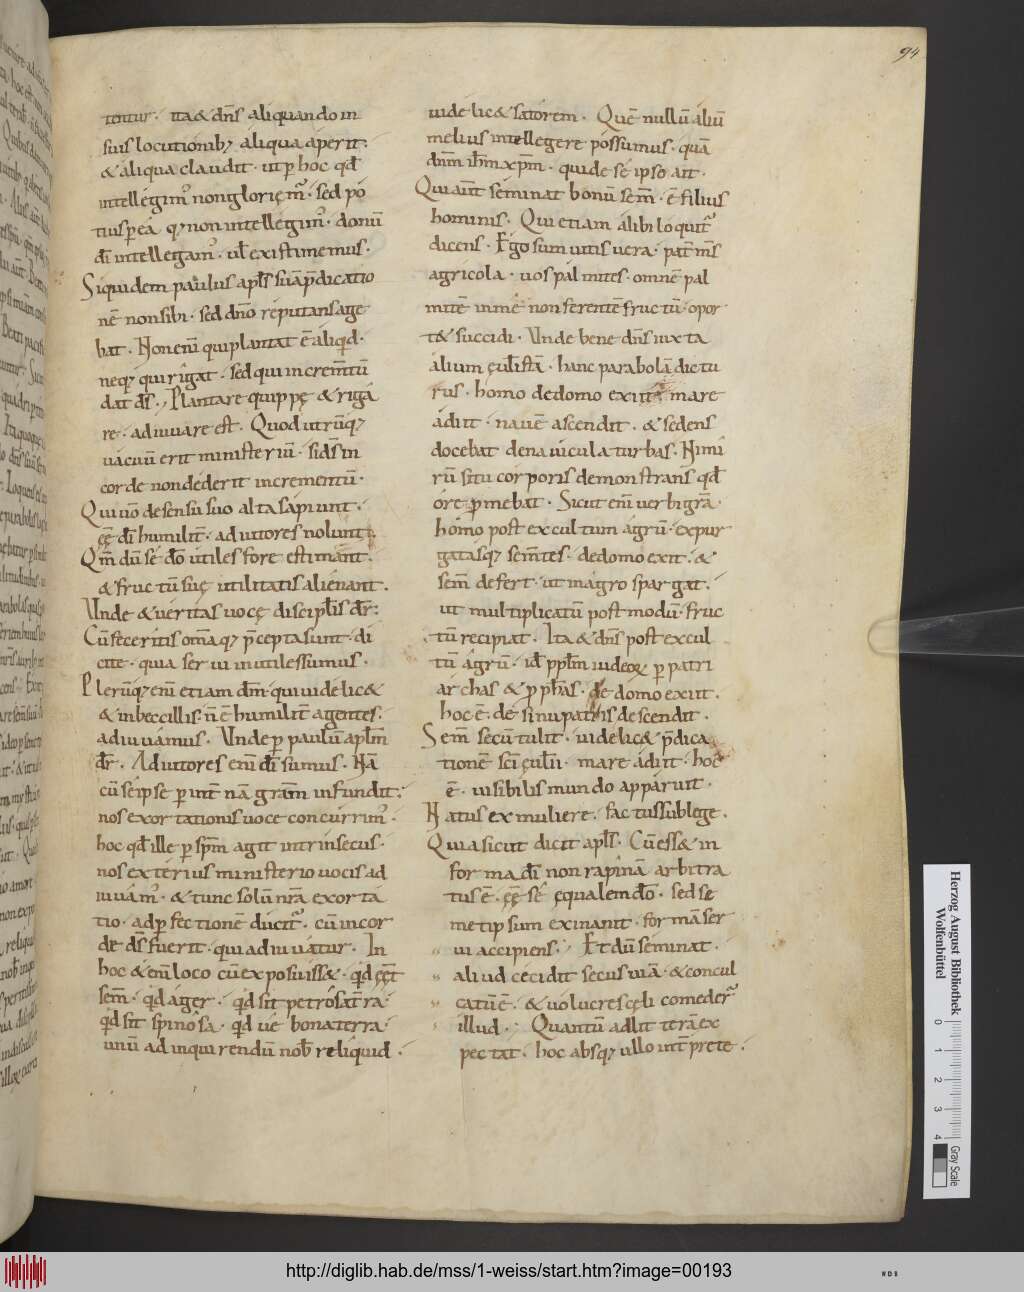 94
tentur. ita & dn̄s aliquando in
suis locutionib; aliqua aperit.
& aliqua claudit. ut ꝑ hoc qđ
intellegim' non gloriem'. sed po
tius ꝑ ea q; non intellegim'. donū
dī intellegam'. ul existimemus.
Siquidem paulus apłs suā p̄dicatio
nē non sibi. sed dn̄o reputans age
bat. Non eni qui plantat ē aliqd.
neq; qui rigat. sed qui incrementū
dat ds̄. Plantare quippe & riga
re. adiuuare est. Quod utrūq;
uacuū erit ministeriū. si ds̄ in
corde non dederit incrementū.
Qui uo desensu suo alta sapiunt.
ee dī humilit. adiutores nolunt
Qm̄ dū se dō utiles fore estimant.
& fructū sue utilitatis alienant.
Unde & ueritas uoce discipłis dr̄:
Cū feceritis omā q; p̄cepta sunt. di
cite. quia serui inutiles sumus.
Plerūq; eni etiam dm̄ qui uidelic&
& inbeccillis. n̄ ē humilit agentes.
adiuuamus. Unde ꝑ paulū apłm
dr̄. Adiutores eni dī sumus. Nā
cū se ipse ꝑ int nā gram infundit.
nos exortationis uoce concurrim'.
hoc qđ ille ꝑ spm̄ agit intrinsecus.
nos exterius ministerio uocis ad
iuuam'. & tunc solū nra exorta
tio. ad ꝑfectionē ducit'. cū in cor
de ds̄ fuerit. qui adiuuatur. In
hoc & eni loco cū exposuiss&. qd eet
sem̄. qd ager. qd sit petrosa tra.
qd sit spinosa. qd ue bona terra.
unū ad inquirendū nob reliquid.
uidelic& satorem. Quē nullū aliū
melius intellegere possumus. quā
dnm ihm xpm. qui de se ipso ait.
Qui aut seminat bonū sem̄. ē filius
hominis. Qui etiam alibi loquit'
dicens. Ego sum uitis uera. pat ms
agricola. uos palmites. omnē pal
mitē in me non ferentē fructū. opor
t& succidi. Unde bene dn̄s iuxta
alium eulistā. hanc parabolā dictu
rus. homo de domo exiit. mare
adiit. nauē ascendit. & sedens
docebat de nauicula turbas. Nimi
rū situ corporis demonstrans qđ
ore ꝓmebat. Sicut eni uerbi gra.
homo post excultum agrū. expur
gatasq; semtes. de domo exit. &
sem̄ defert. ut in agro spargat.
ut multiplicatū post modū. fruc
tū recipiat. Ita & dn̄s post excul
tū agrū. id pplm iudeoꝝ ꝑ patri
archas & ꝓphas. de domo exiit.
hoc ē. de sinu patris descendit.
Sem̄ secū tulit. uidelic& p̄dica
tionē sci euln. mare adiit. hoc
ē. uisibilis mundo apparuit.
Natus ex muliere. factus sub lege.
Quia sicut dicit apłs. Cū ess& in
forma dī non rapinā arbitra
tus ē. ee se equalem dō. sed se
metipsum exinanit. formā ser
ui accipiens. Et dū seminat.
aliud cecidit secus uiā. & concul
catū ē. & uolucres celi comeder'
illud. Quantū adtit terā ex
pectat. hoc absq; ullo int prete.
Herzog August Bibliothek
Wolfenbüttel
0 1 2 3 4
Gray Scale
http://diglib.hab.de/mss/1-weiss/start.htm?image=00193